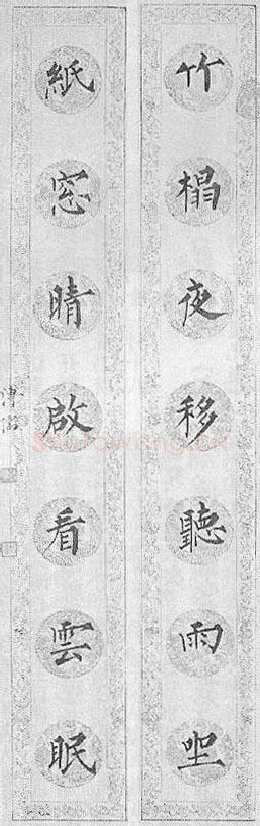 竹榻夜移聽雨坐
紙窓晴啟看雲眠
溥儒